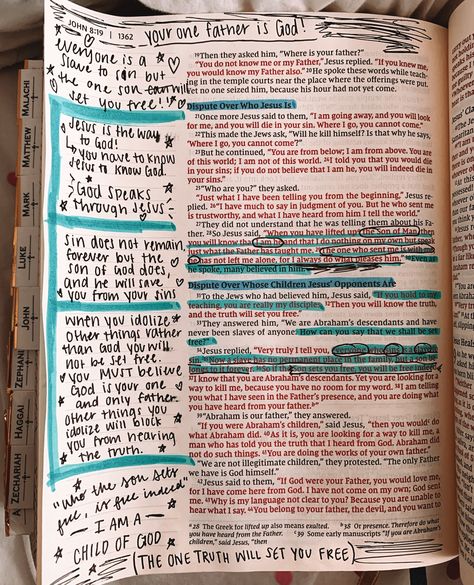 JOHN 8:19 | 1362
YOUR ONE FATHER IS GOD!
everyone is a
slave to sin but
the one son can will
set you free!
Jesus is the way
to God!
↳ you have to know
Jesus to know God.
↳ God speaks
through Jesus
Sin does not remain
forever but the
son of God does,
and he will save
you from your sin!
When you idolize
other things rather
than God you will
not be set free.
you MUST believe
God is your one
and only father.
other things you
idolize will block
you from hearing
the truth.
"who the son sets
free, is free indeed"
I AM A
CHILD OF GOD
(THE ONE TRUTH WILL SET YOU FREE)
19Then they asked him, "Where is your father?"
"You do not know me or my Father," Jesus replied. "If you knew me,
you would know my Father also." 20He spoke these words while teach-
ing in the temple courts near the place where the offerings were put.
Yet no one seized him, because his hour had not yet come.
Dispute Over Who Jesus Is
21Once more Jesus said to them, "I am going away, and you will look
for me, and you will die in your sin. Where I go, you cannot come."
22This made the Jews ask, "Will he kill himself? Is that why he says,
'Where I go, you cannot come'?"
23But he continued, "You are from below; I am from above. You are
of this world; I am not of this world. 24I told you that you would die
in your sins; if you do not believe that I am he, you will indeed die in
your sins."
25"Who are you?" they asked.
"Just what I have been telling you from the beginning," Jesus re-
plied. 26"I have much to say in judgment of you. But he who sent me
is trustworthy, and what I have heard from him I tell the world."
27They did not understand that he was telling them about his Fa-
ther. 28So Jesus said, "When you have lifted up the Son of Man, then
you will know that I am he and that I do nothing on my own but speak
just what the Father has taught me. 29The one who sent me is with me;
he has not left me alone, for I always do what pleases him." 30Even as
he spoke, many believed in him.
Dispute Over Whose Children Jesus' Opponents Are
31To the Jews who had believed him, Jesus said, "If you hold to my
teaching, you are really my disciples. 32Then you will know the truth,
and the truth will set you free."
33They answered him, "We are Abraham's descendants and have
never been slaves of anyone. How can you say that we shall be set
free?"
34Jesus replied, "Very truly I tell you, everyone who sins is a slave to
sin. 35Now a slave has no permanent place in the family, but a son be-
longs to it forever. 36So if the Son sets you free, you will be free indeed.
37I know that you are Abraham's descendants. Yet you are looking for a
way to kill me, because you have no room for my word. 38I am telling
you what I have seen in the Father's presence, and you are doing what
you have heard from your father."
39"Abraham is our father," they answered.
"If you were Abraham's children," said Jesus, "then you would do
what Abraham did. 40As it is, you are looking for a way to kill me, a
man who has told you the truth that I heard from God. Abraham did
not do such things. 41You are doing the works of your own father."
"We are not illegitimate children," they protested. "The only Father
we have is God himself."
42Jesus said to them, "If God were your Father, you would love me,
for I have come here from God. I have not come on my own; God sent
me. 43Why is my language not clear to you? Because you are unable to
hear what I say. 44You belong to your father, the devil, and you want to
a 28 The Greek for lifted up also means exalted. b 38 Or presence. Therefore do what
you have heard from the Father. c 39 Some early manuscripts "If you are Abraham's
children," said Jesus, "then
MALACHI
MATTHEW
MARK
LUKE
JOHN
ZEPHANI
HAGGAI
ZECHARIAH